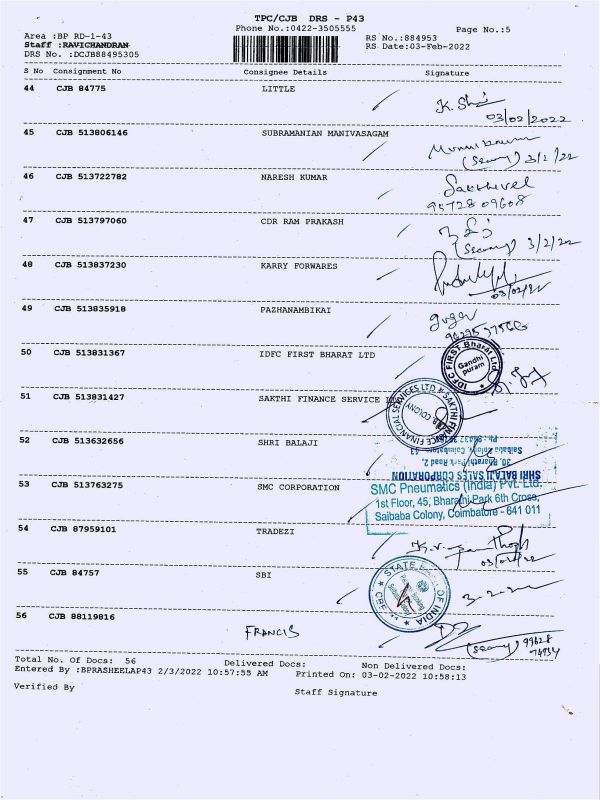 TPC/CJB DRS - P43
Phone No.:0422-3505555
Page No.:5
Area :BP RD-1-43
RS No.:884953
Staff :RAVICHANDRAN
RS Date:03-Feb-2022
DRS No. :DCJB88495305
S No Consignment No Consignee Details Signature
44 CJB 84775 LITTLE
03/02/2022
45 CJB 513806146 SUBRAMANIAN MANIVASAGAM
3/2/22
46 CJB 513722782 NARESH KUMAR
Sakthivel
95728 09608
47 CJB 513797060 CDR RAM PRAKASH
3/2/22
48 CJB 513837230 KARRY FORWARES
03/02/22
49 CJB 513835918 PAZHANAMBIKAI
50 CJB 513831367 IDFC FIRST BHARAT LTD
IDFC FIRST Bharat Ltd
Gandhi
puram
51 CJB 513831427 SAKTHI FINANCE SERVICE
SAKTHI FINANCE FINANCIAL SERVICES LTD
COLONY
52 CJB 513632656 SHRI BALAJI
SHRI BALAJI SALES CORPORATION
30, Bharathi Park Road 2,
Saibaba Colony, Coimbatore
53 CJB 513763275 SMC CORPORATION
SMC Pneumatics (India) Pvt. Ltd.
1st Floor, 45, Bharathi Park 6th Cross,
Saibaba Colony, Coimbatore - 641 011
54 CJB 87959101 TRADEZI
55 CJB 84757 SBI
STATE BANK OF INDIA
CBE
3-2-2022
56 CJB 88119816
FRANCIS
Total No. Of Docs: 56 Delivered Docs: Non Delivered Docs:
Entered By :BPRASHEELAP43 2/3/2022 10:57:55 AM Printed On: 03-02-2022 10:58:13
Verified By Staff Signature